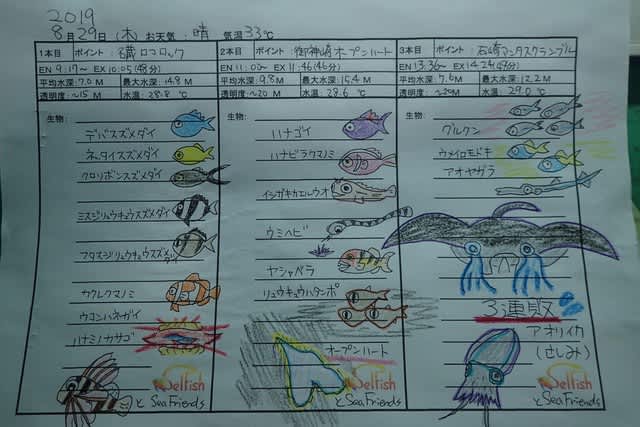 2019
8月29日(木) お天気:晴 気温33℃
1本目 ポイント:
EN 9:17〜 EX 10:05(48分)
平均水深:7.0M 最大水深:14.8M
透明度:〜15M 水温:28.8℃
生物:
デバスズメダイ
ネッタイスズメダイ
クロリボンスズメダイ
ミスジリュウキュウスズメダイ
フタスジリュウキュウスズメダイ
カクレクマノミ
ウコンハネガイ
ハナミノカサゴ
Selfish
と Sea Friends
2本目 ポイント:御神崎オープンハート
EN 11:00〜 EX 11:46(46分)
平均水深:9.8M 最大水深:15.4M
透明度:〜20M 水温:28.6℃
生物:
ハナゴイ
ハナビラクマノミ
イシガキカエルウオ
ウミヘビ
ヤシャベラ
リュウキュウハタンポ
オープンハート
Selfish
と Sea Friends
3本目 ポイント:石崎マンタスクランブル
EN 13:36〜 EX 14:24
平均水深:7.6M 最大水深:12.2M
透明度:〜20M 水温:29.0℃
生物:
グルクン
ウメイロモドキ
アオヤガラ
3連敗
アオリイカ
(さしみ)
Selfish
と Sea Friends